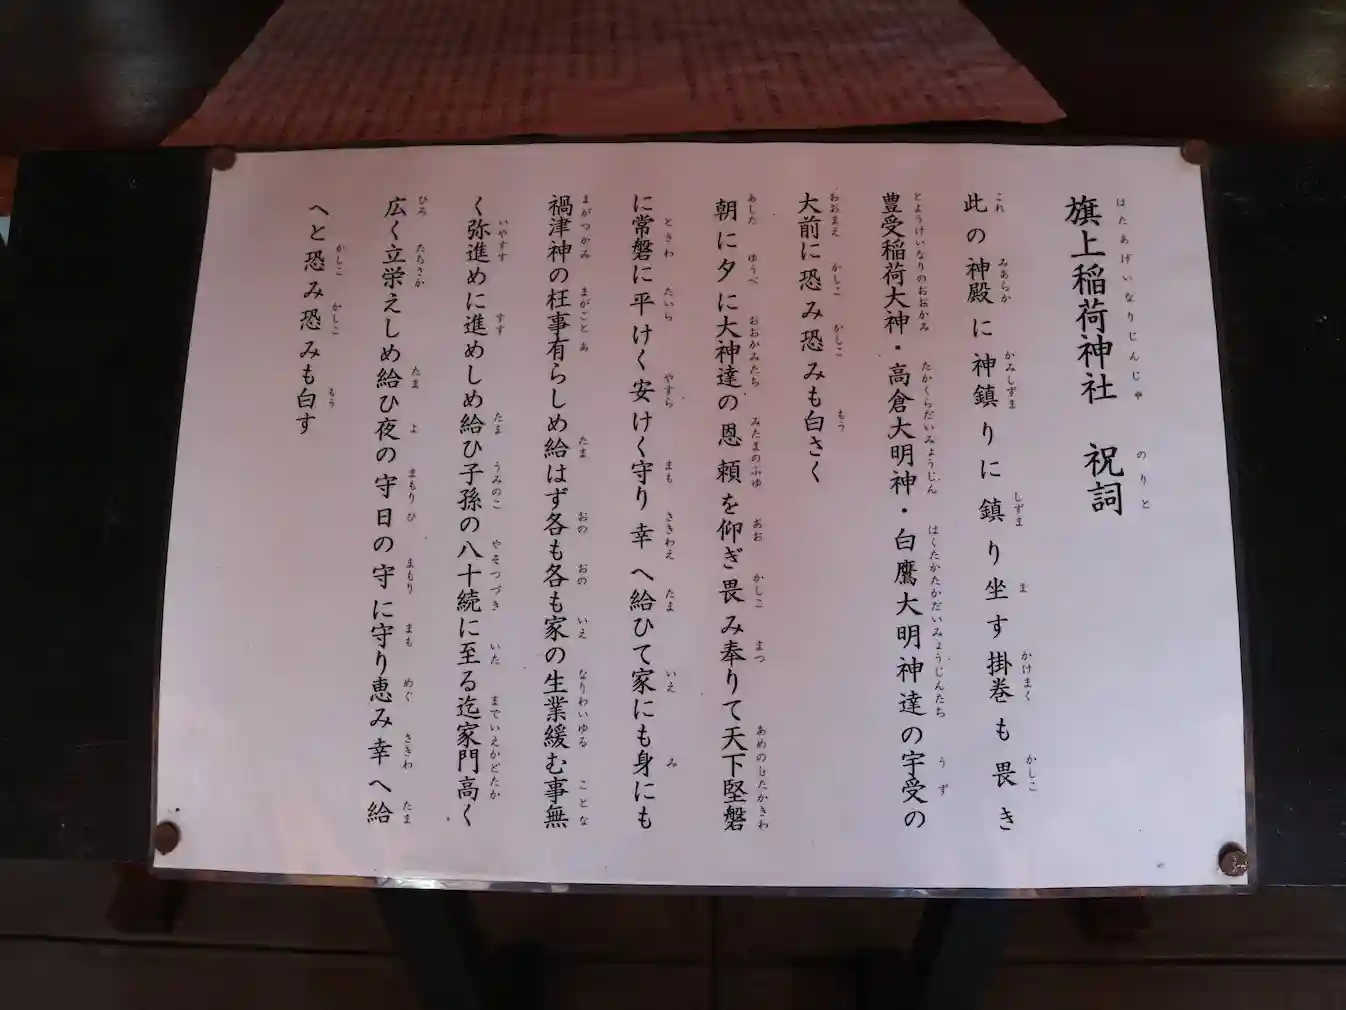 旗上稲荷神社　祝詞
此の神殿に神鎮りに鎮り坐す掛巻も畏き
豊受稲荷大神・高倉大明神・白鷹大明神達の宇受の
大前に恐み恐みも白さく
朝に夕に大神達の恩頼を仰ぎ畏み奉りて天下堅磐
に常磐に平けく安けく守り幸へ給ひて家にも身にも
禍津神の枉事有らしめ給はず各も各も家の生業緩む事無
く弥進めに進めしめ給ひ子孫の八十続に至る迄家門高く
広く立栄えしめ給ひ夜の守日の守に守り恵み幸へ給
へと恐み恐みも白す